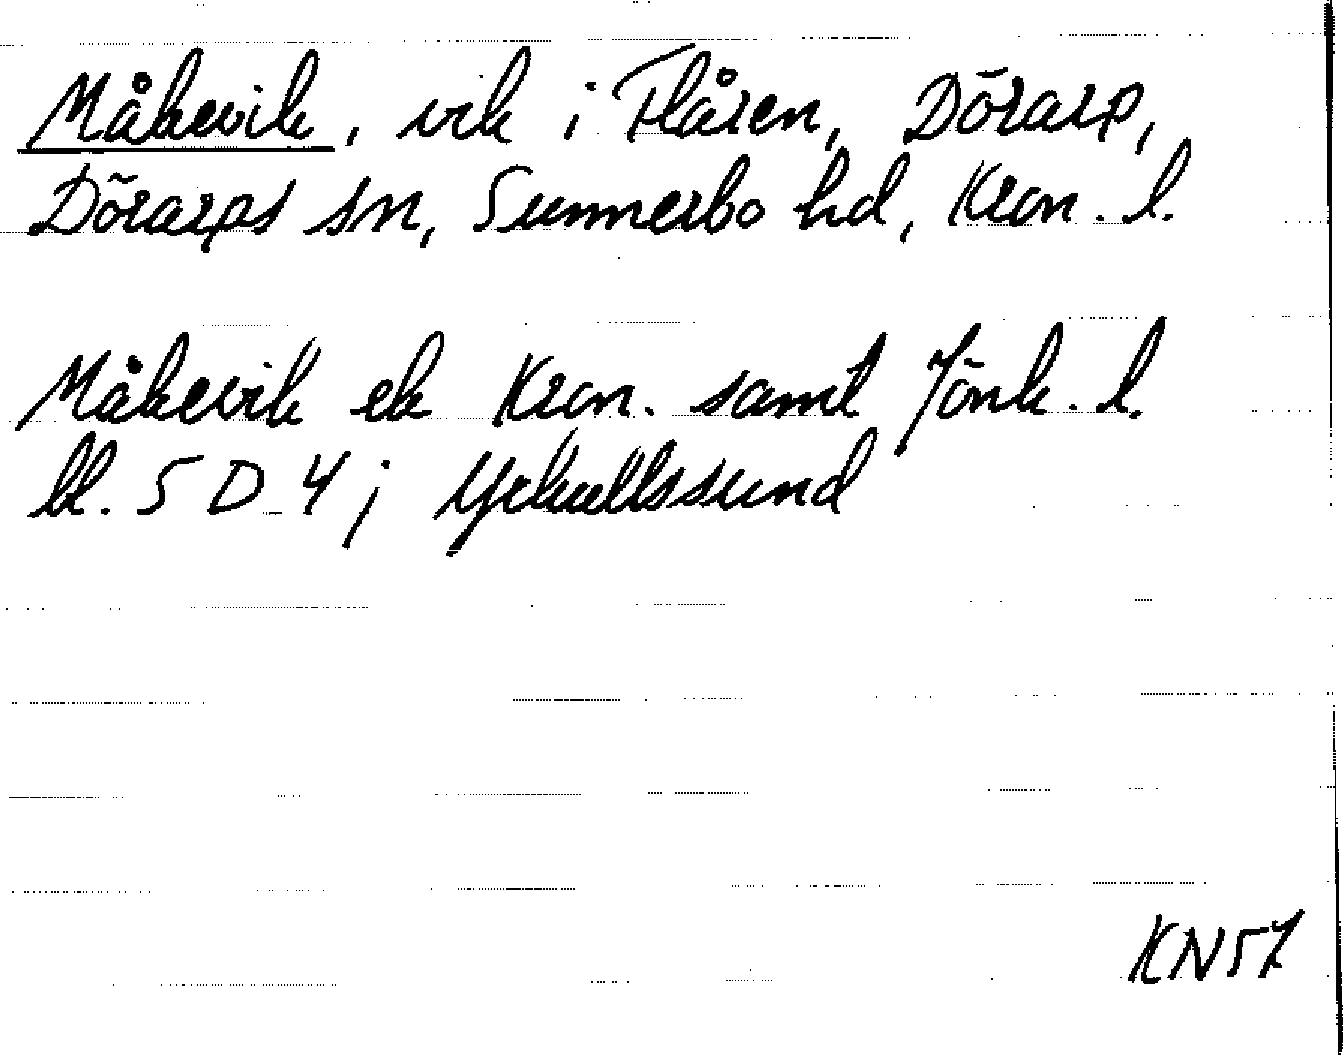 Måkevik, vik i Flåren, Dörarp,
Dörarps sn, Sunnerbo hd, Kron. l.
Måkevik ek Kron. samt Jönk. l.
bl. 5 D 4; Yxkullssund
KN57